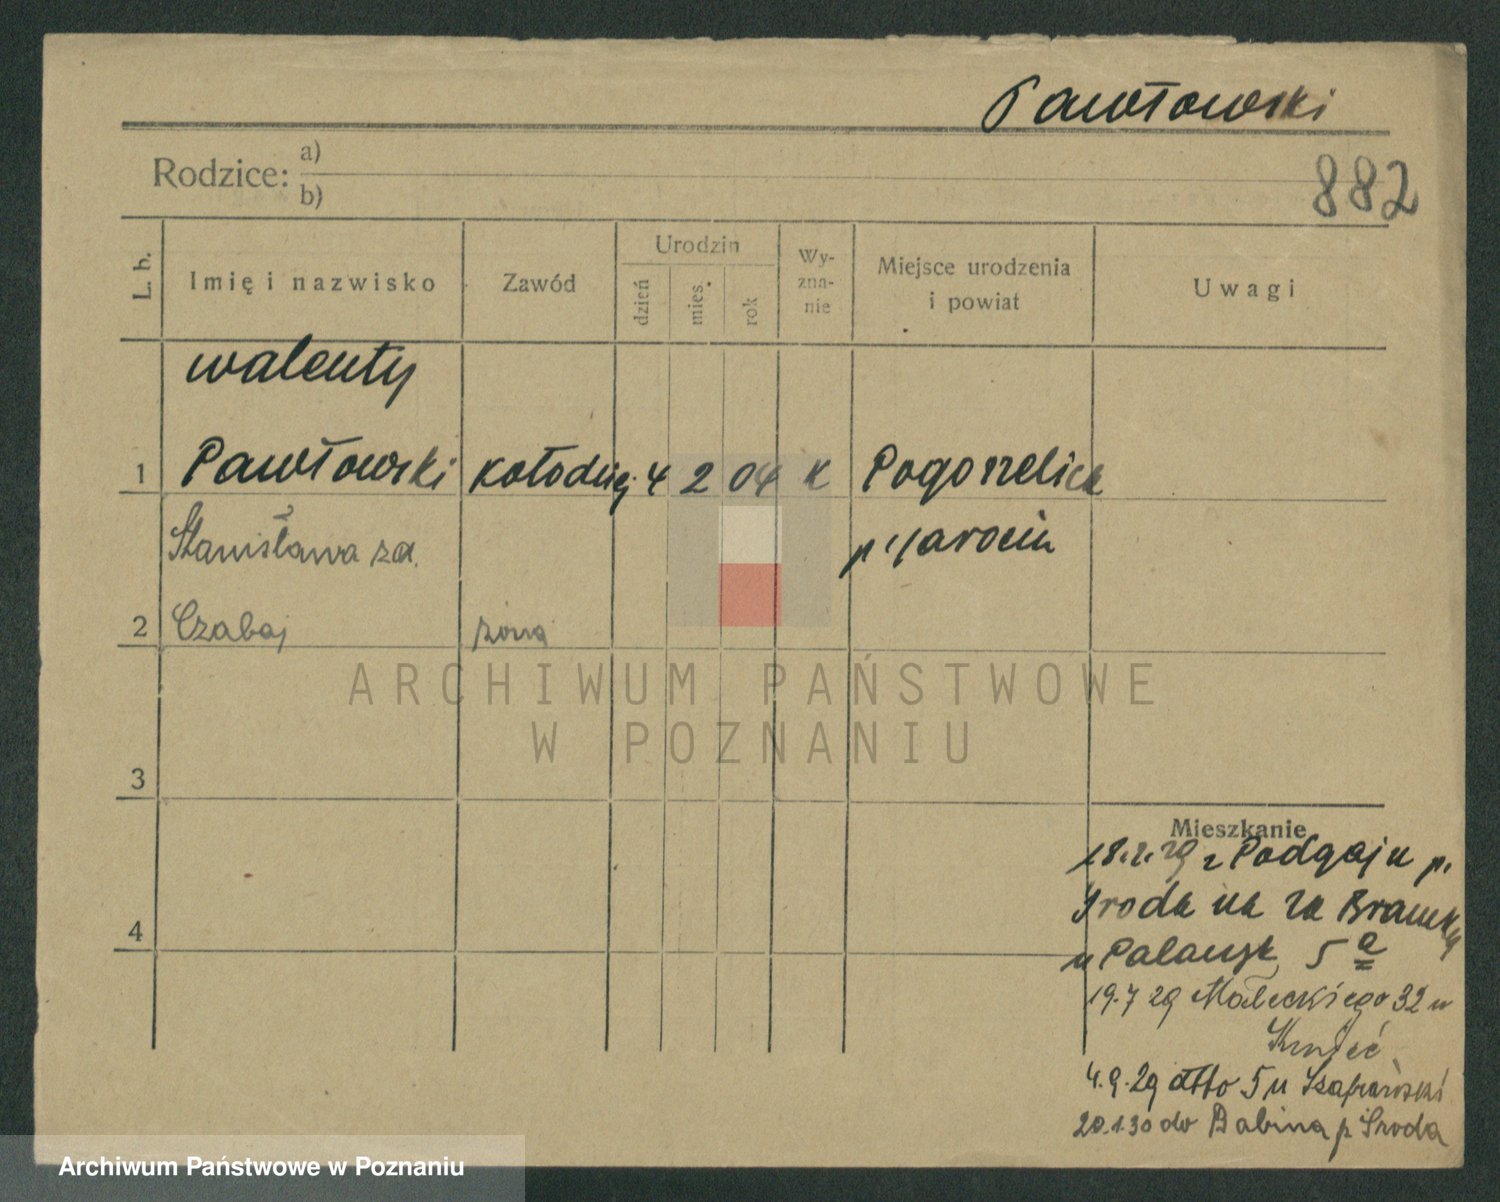 Pawłowski
Rodzice: a)
b)
882
L. b.
Imię i nazwisko
Zawód
Urodzin
dzień
mies.
rok
Wy-
zna-
nie
Miejsce urodzenia
i powiat
Uwagi
Walenty
1 Pawłowski kołodziej 4 2 04 K Pogorzelica
Stanisława zd. p. Jarocin
2 Czabaj żona
3
4
Mieszkanie
18.2.29 z Podgaju p.
Środa na
u 5 a
19.7 29 Małeckiego 32 u
4.9.29 dtto 5 u Szafrański
20.1.30 do Babina p Środa
ARCHIWUM PAŃSTWOWE
W POZNANIU
Archiwum Państwowe w Poznaniu